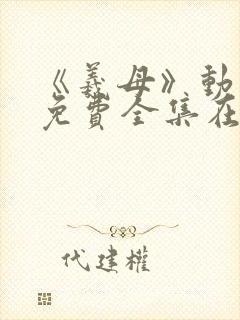 《義母》動
免費全集在
代建權